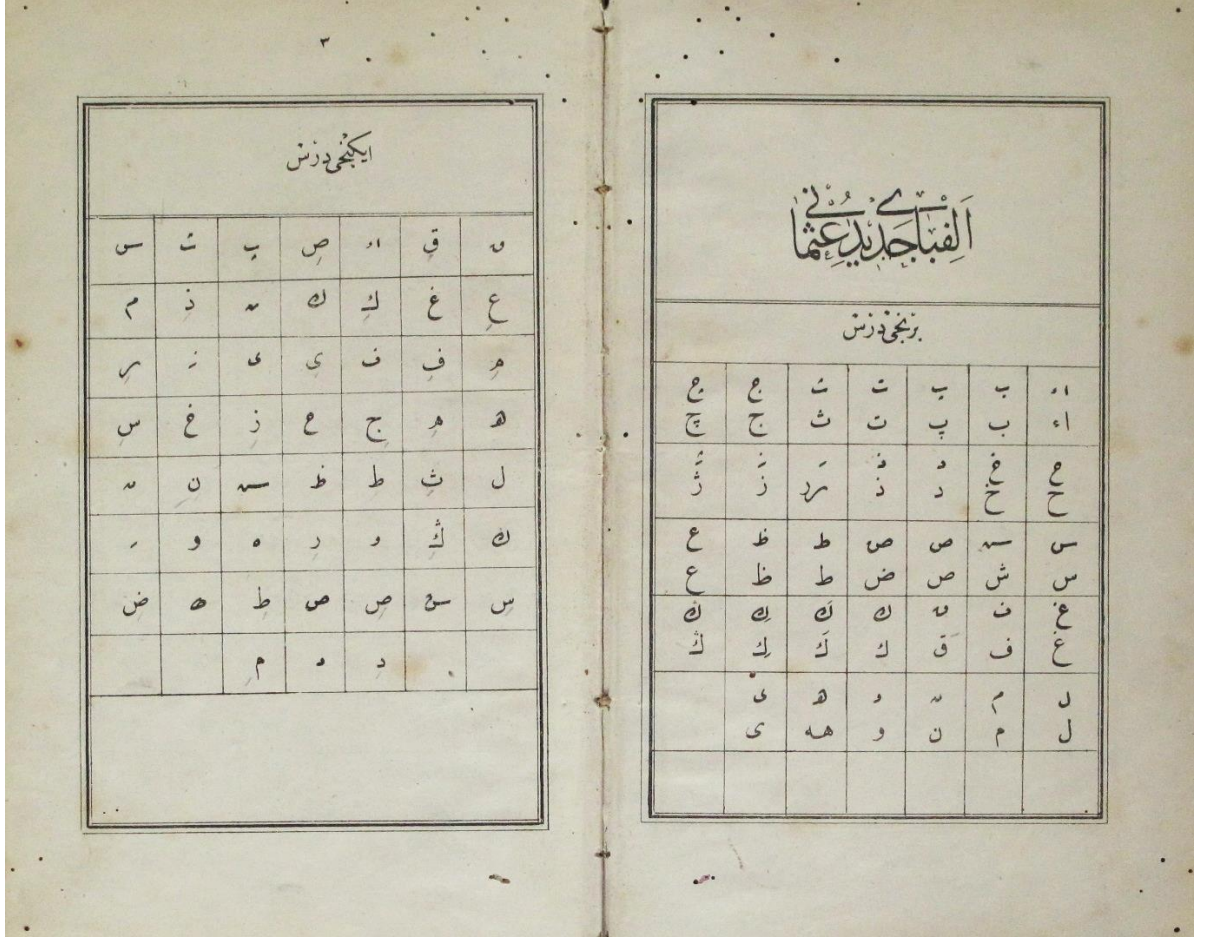 اَلِفبَاىِ جَدِيدِ عُثمَانِى
برنجى درس
ا ء ب پ ت ث ج چ
اء ب پ ت ث ج چ
ح خ د ذ ر ز ژ
ح خ د ذ ر ز ژ
س ش ص ض ط ظ ع
س ش ص ض ط ظ ع
غ ف ق ك ك ك ڭ
غ ف ق ك ك ك ڭ
ل م ن و ه ى
ل م ن و هـه ى
٣
ايكنجى درس
ق ق اء ص پ ت س
ع غ ك ك ن ذ م
م ف ف ى ى ز ر
ه م ج ح ز خ س
ل ث ط ظ س ن ن
ك ڭ و ر ه و ر
س ش ص ص ط ه ض
د د م